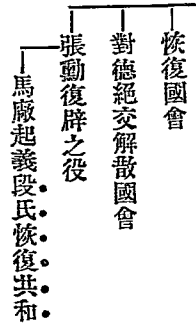 恢復國會
對德絕交解散國會
張勳復辟之役
馬廠起義段氏恢復共和